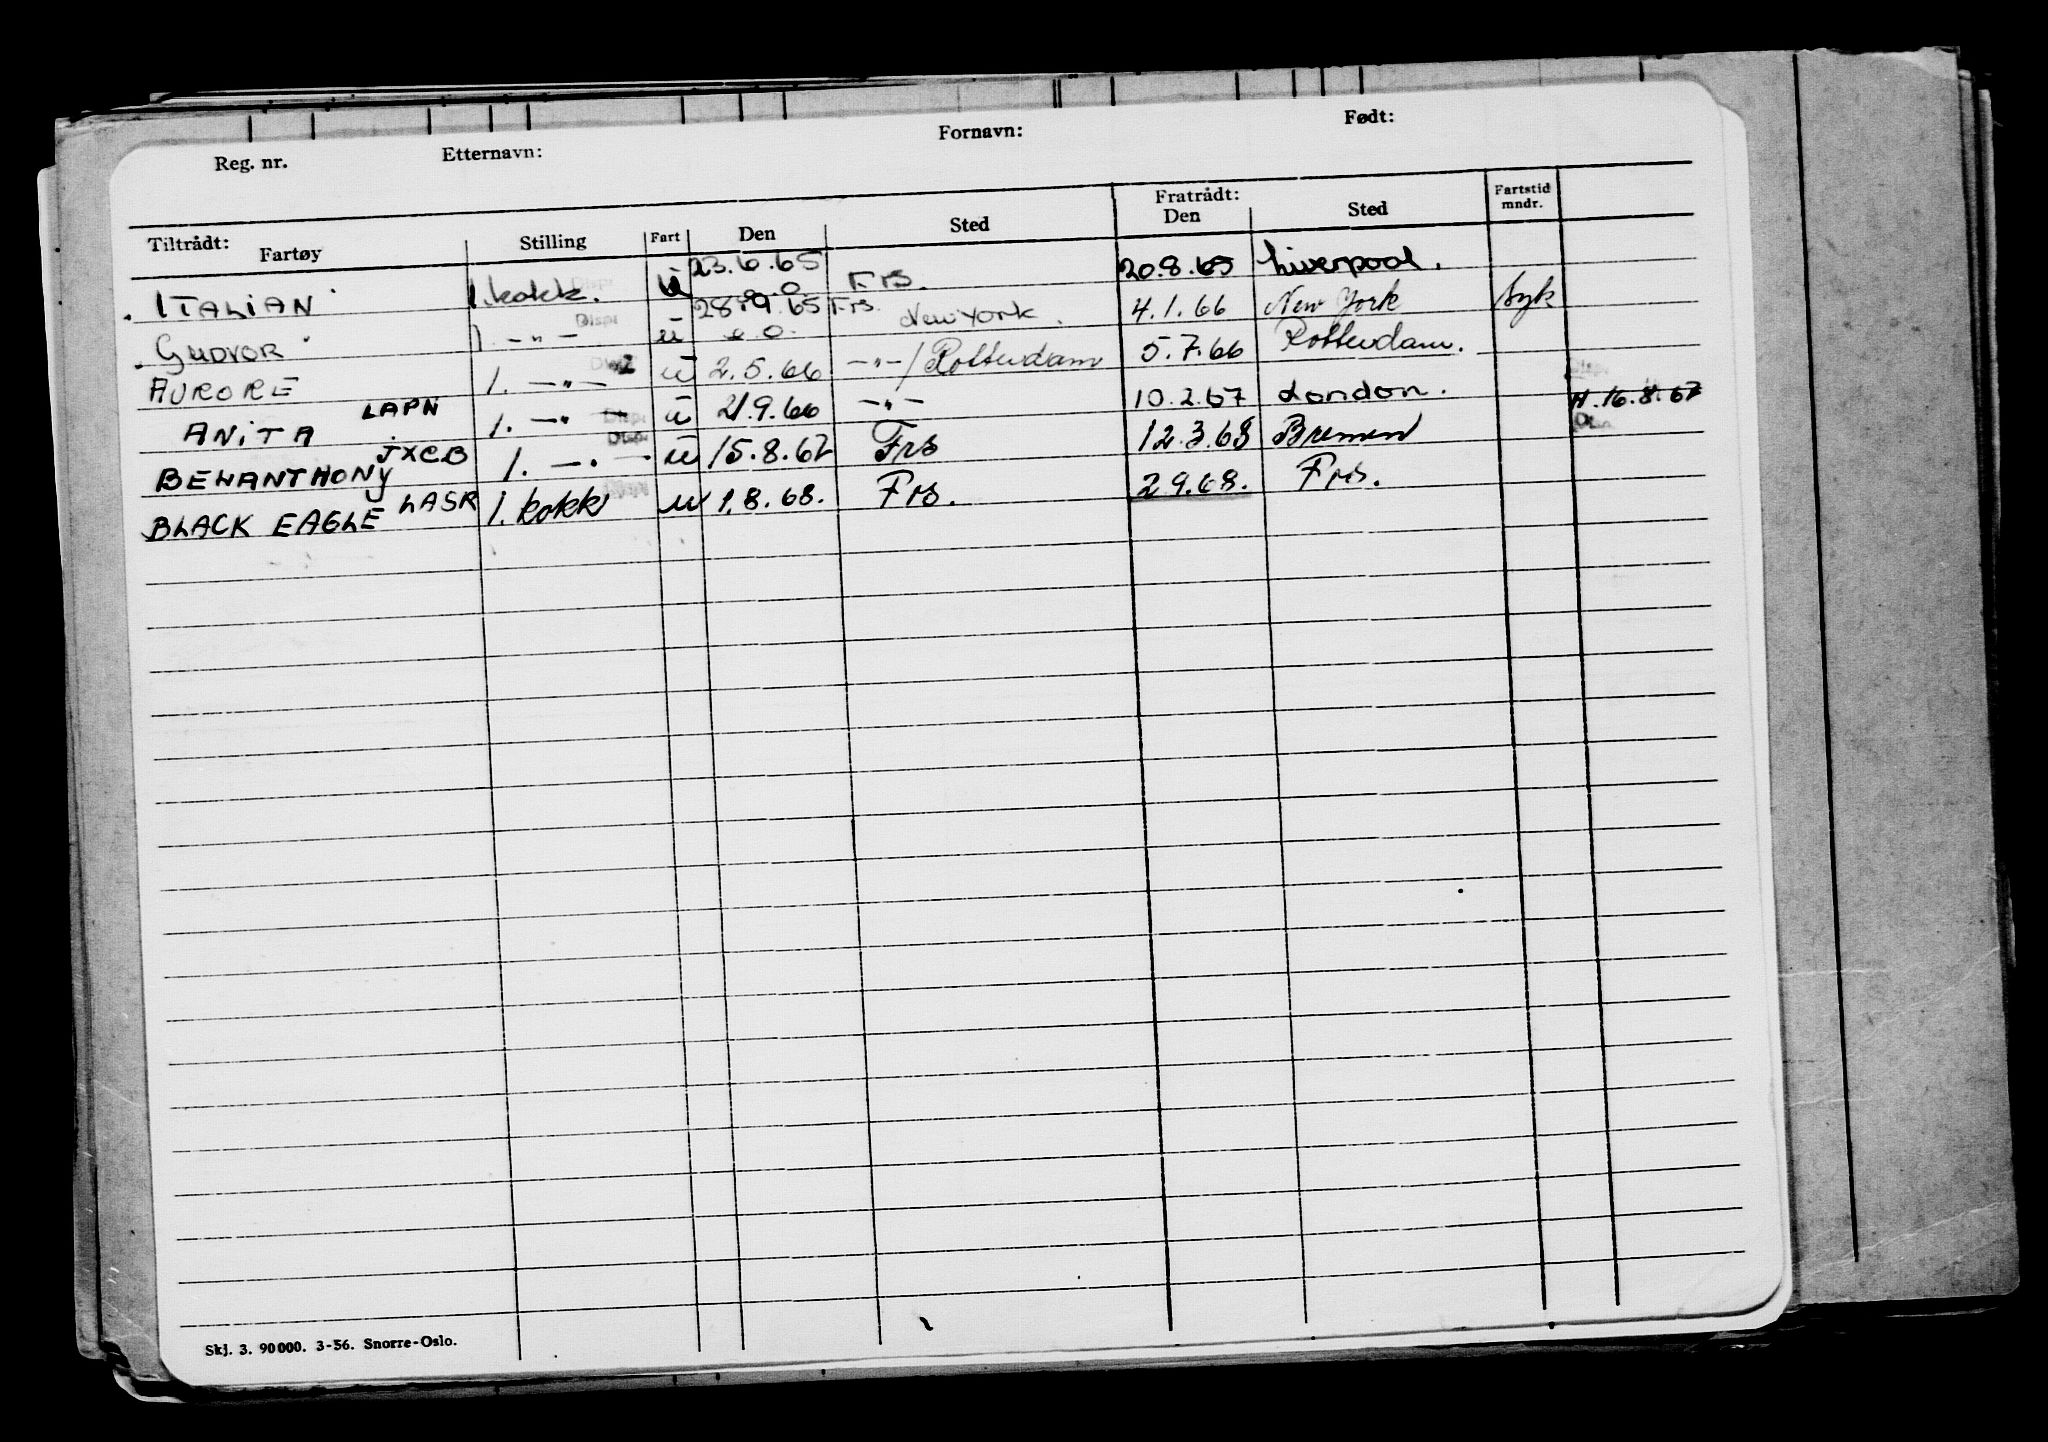 Reg. nr. Etternavn: Fornavn: Født:
Tiltrådt: Fartøy Stilling Fart Den Sted Fratrådt: Den Sted Fartstid mndr.
ITALIAN 1. kokk. Disp u 23.6.65 Frs. 20.8.65 Liverpool.
GUDVOR 1. -"- Disp u 28.9.65 Frs. New York. 4.1.66 New York Syk
AURORE 1. -"- u 2.5.66 -"-/Rotterdam 5.7.66 Rotterdam.
ANITA LAPN 1. -"- Disp u 21.9.66 -"- 10.2.67 London. H. 16.8.67
BEWANTHONY JXCB 1. -"- Disp u 15.8.67 Frs 12.3.68 Bremen
BLACK EAGLE LASR 1. kokk u 1.8.68. Frs. 2.9.68. Frs.
Skj. 3. 90000. 3-56. Snorre-Oslo.